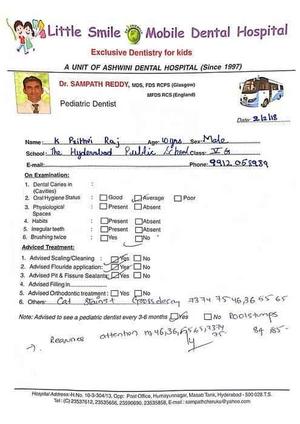 Little Smile Mobile Dental Hospital
Exclusive Dentistry for kids
A UNIT OF ASHWINI DENTAL HOSPITAL (Since 1997)
Dr. SAMPATH REDDY, MDS, FDS RCPS (Glasgow)
MFDS RCS (England)
Pediatric Dentist
Date: 2/2/18
Name: K Prithvi Raj Age: 10yrs Sex: Male
School: The Hyderabad Public School Class: V G
E-mail: Phone: 9912058989
On Examination:
1. Dental Caries in :
(Cavities)
2. Oral Hygiene Status : Good Average Poor
3. Physiological : Present Absent
Spaces
4. Habits : Present Absent
5. Irregular teeth : Present Absent
6. Brushing twice : Yes No
Adviced Treatment:
1. Advised Scaling/Cleaning : Yes No
2. Advised Flouride application : Yes No
3. Advised Pit & Fissure Sealants : Yes No
4. Advised Filling in
5. Advised Orthodontic treatment : Yes No
6. Others: Gross decay 7374 75 46,36 55 65
Note: Advised to see a pediatric dentist every 3-6 months Yes No
→ Requires attention no 46,36, 75 84 85
Hospital Address-H.No. 10-3-304/13, Opp: Post Office, Humayunnagar, Masab Tank, Hyderabad - 500 028 T.S.
Tel: (C) 23537612, 23535656, 23590690, 23535858, E-mail: sampathcheruku@yahoo.com